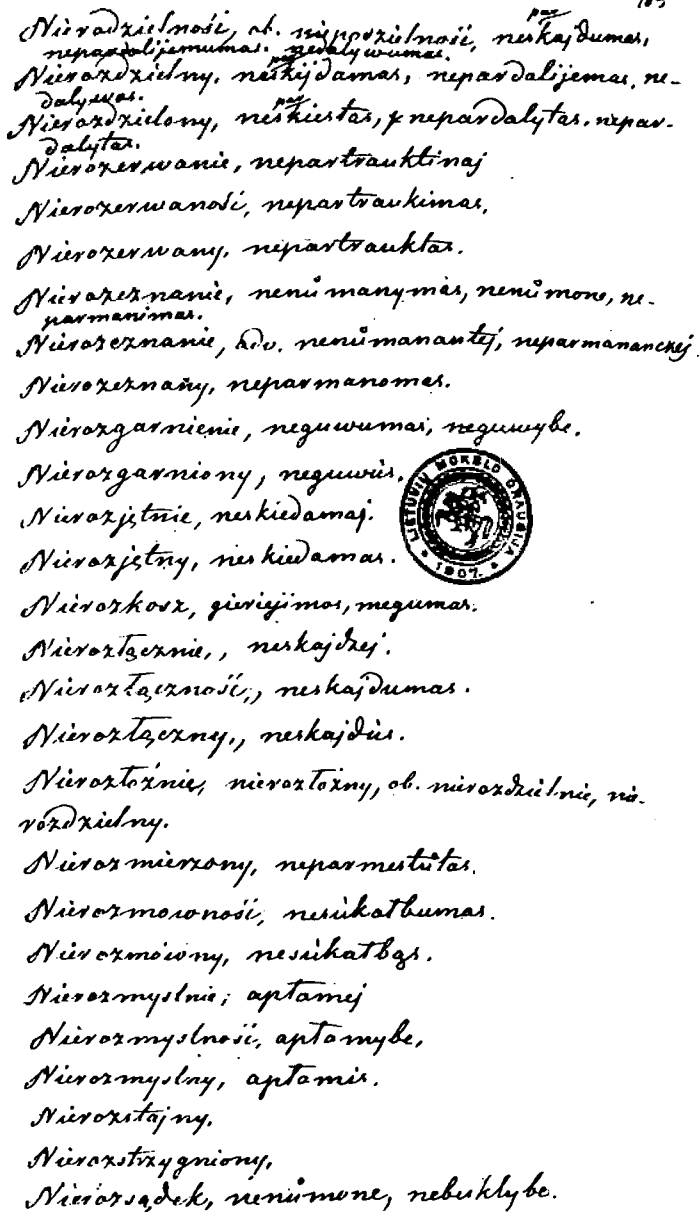 Nierozdzielność, ob. niepodzielność, neskajdumas,
nepardalijemumas. nedalywumas.
Nierozdzielny, neskijdamas, nepardalijemas, ne-
dalywas.
Nierozdzielony, neskirstas, nepardalytas. nepar-
dalytas.
Nierozerwanie, nepartrauktinaj
Nierozerwaność, nepartraukimas,
Nierozerwany, nepartrauktas.
Nierozeznanie, nenůmanymas, nenůmone, ne-
parmanimas.
Nierozeznanie, adv. nenůmanantej, neparmananczej
Nierozeznany, neparmanomas.
Nierozgarnienie, neguwumas, neguwybe.
Nierozgarniony, neguwus.
LIETUVIŲ MOKSLO DRAUGIJA
1907.
Nierozjętnie, neskiedamaj.
Nierozjętny, neskiedamas.
Nierozkosz, giericjimos, megumas.
Nierozłącznie, neskajdzej.
Nierozłączność, neskajdumas.
Nierozłączny, neskajdus.
Nierozłożnie, nierozłożny, ob. nierozdzielnie, nie-
rozdzielny.
Nierozmierzony, neparmestůtas.
Nierozmowność, nesukalbumas.
Nierozmówny, nesukalbąs.
Nierozmyslnie, apłamej
Nierozmyslność, apłamybe,
Nierozmyslny, apłamis.
Nierozstajny,
Nierozstrzygniony,
Nierozsądek, nenůmone, nebuklybe.